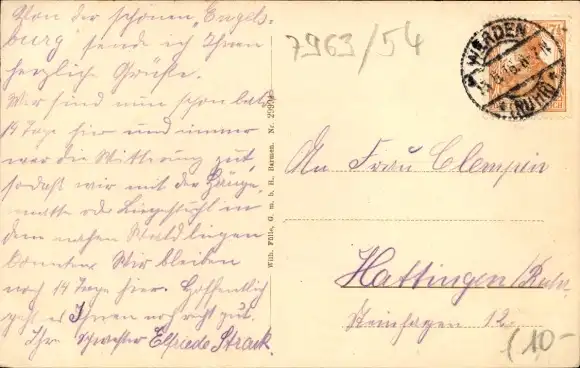 Von der schönen „Engels-
burg" sende ich Ihnen
herzliche Grüße.
Wir sind nun schon bald
14 Tage hier und immer
war die Witterung gut,
sodaß wir mit der Hänge-
matte oder Liegestuhl in
dem nahen Wald liegen
konnten. Wir bleiben
noch 14 Tage hier. Hoffentlich
geht es Ihnen noch recht gut.
Ihre Schwester Elfriede Strack
Wilh. Fülle, G. m. b. H., Barmen. Nr.
7963/54
WERDEN
(RUHR)
An Frau Clempin
Hattingen/Ruhr.
Steinhagen 12
(10-